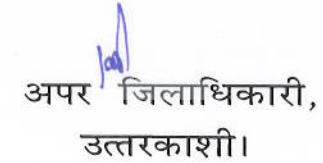 अपर जिलाधिकारी,
उत्तरकाशी।